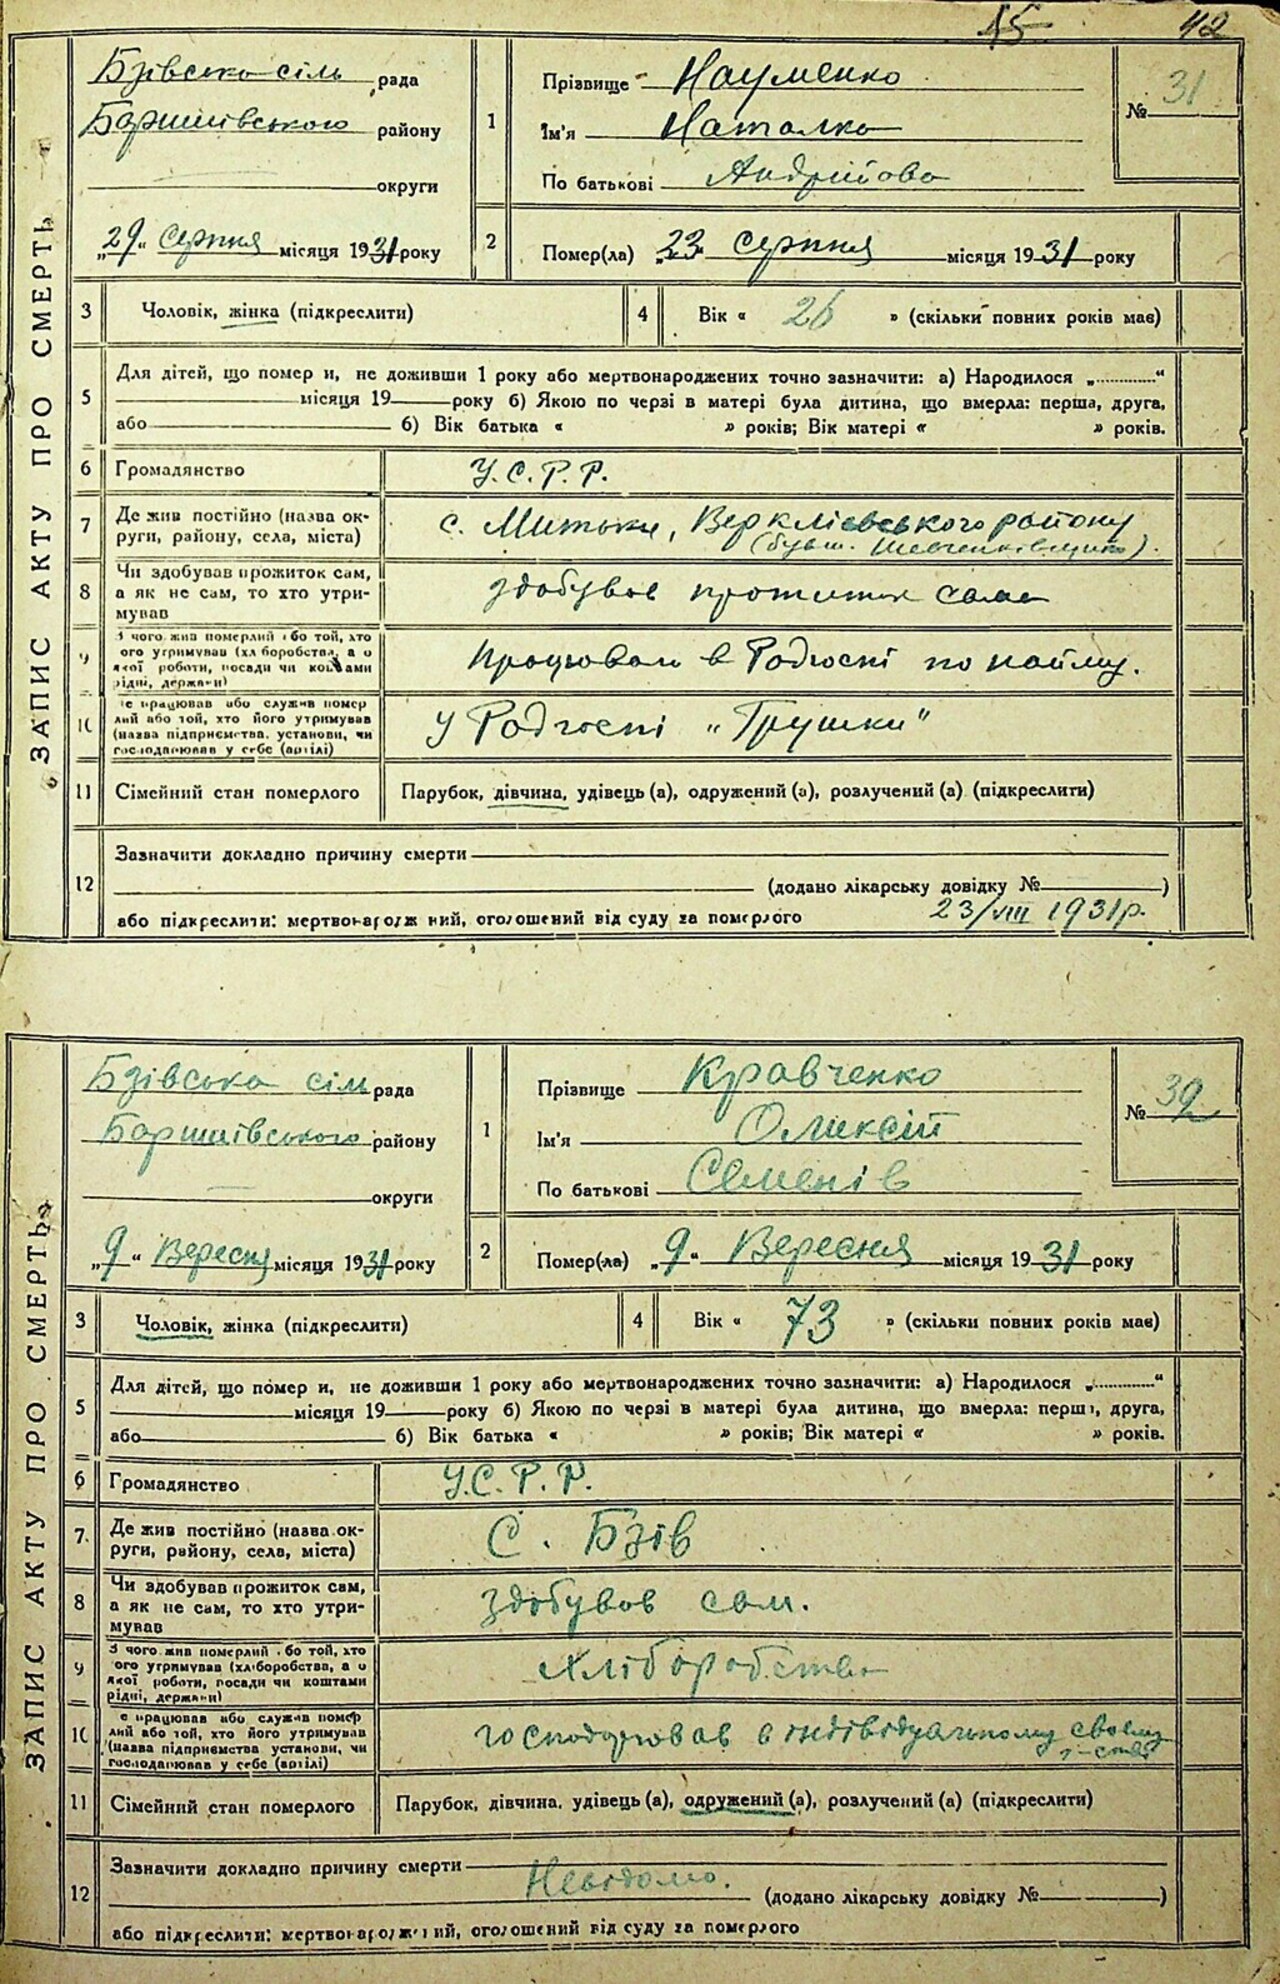 15 42
ЗАПИС АКТУ ПРО СМЕРТЬ
Бзівська сіль рада
Баришівського району
округи
„29“ Серпня місяця 1931 року
1
Прізвище Науменко
Ім'я Наталка
По батькові Андрійова
№ 31
2
Помер(ла) 23 серпня місяця 1931 року
3 Чоловік, жінка (підкреслити)
4 Вік « 26 » (скільки повних років має)
5
Для дітей, що помер и, не доживши 1 року або мертвонароджених точно зазначити: а) Народилося „............“
місяця 19 року б) Якою по черзі в матері була дитина, що вмерла: перша, друга,
або б) Вік батька « » років; Вік матері « » років.
6 Громадянство У.С.Р.Р.
7 Де жив постійно (назва ок-
руги, району, села, міста)
с. Митьки, Верклієвського району
(бувш. Шевченківщина).
8 Чи здобував прожиток сам,
а як не сам, то хто утри-
мував
здобував прожиток сама
9 З чого жив померлий або той, хто
ого утримував (хліборобства, а о
якої роботи, посади чи коштами
рідні, держави)
Працювала в Радгоспі по найму.
10 е працював або служив помер
лий або той, хто його утримував
(назва підприємства, установи, чи
господарював у себе (артілі)
у Радгоспі „Грушки“
11 Сімейний стан померлого Парубок, дівчина, удівець (а), одружений (а), розлучений (а) (підкреслити)
12
Зазначити докладно причину смерти
(додано лікарську довідку № )
або підкреслити: мертвонароджений, оголошений від суду за померлого 23/VIII 1931р.
ЗАПИС АКТУ ПРО СМЕРТЬ
Бзівська сіль рада
Баришівського району
округи
„9“ Вересня місяця 1931 року
1
Прізвище Кравченко
Ім'я Олексій
По батькові Семенів
№ 32
2
Помер(ла) „9“ Вересня місяця 1931 року
3 Чоловік, жінка (підкреслити)
4 Вік « 73 » (скільки повних років має)
5
Для дітей, що помер и, не доживши 1 року або мертвонароджених точно зазначити: а) Народилося „............“
місяця 19 року б) Якою по черзі в матері була дитина, що вмерла: перша, друга,
або б) Вік батька « » років; Вік матері « » років.
6 Громадянство У.С.Р.Р.
7. Де жив постійно (назва ок-
руги, району, села, міста)
С. Бзів
8 Чи здобував прожиток сам,
а як не сам, то хто утри-
мував
здобував сам.
9 З чого жив померлий або той, хто
ого утримував (хліборобства, а о
якої роботи, посади чи коштами
рідні, держави)
Хліборобства
10 е працював або служив помер
лий або той, хто його утримував
(назва підприємства установи, чи
господарював у себе (артілі)
господарював в індівідуальному своєму
г-стві
11 Сімейний стан померлого Парубок, дівчина, удівець (а), одружений (а), розлучений (а) (підкреслити)
12
Зазначити докладно причину смерти
Невідомо. (додано лікарську довідку № )
або підкреслити: мертвонароджений, оголошений від суду за померлого